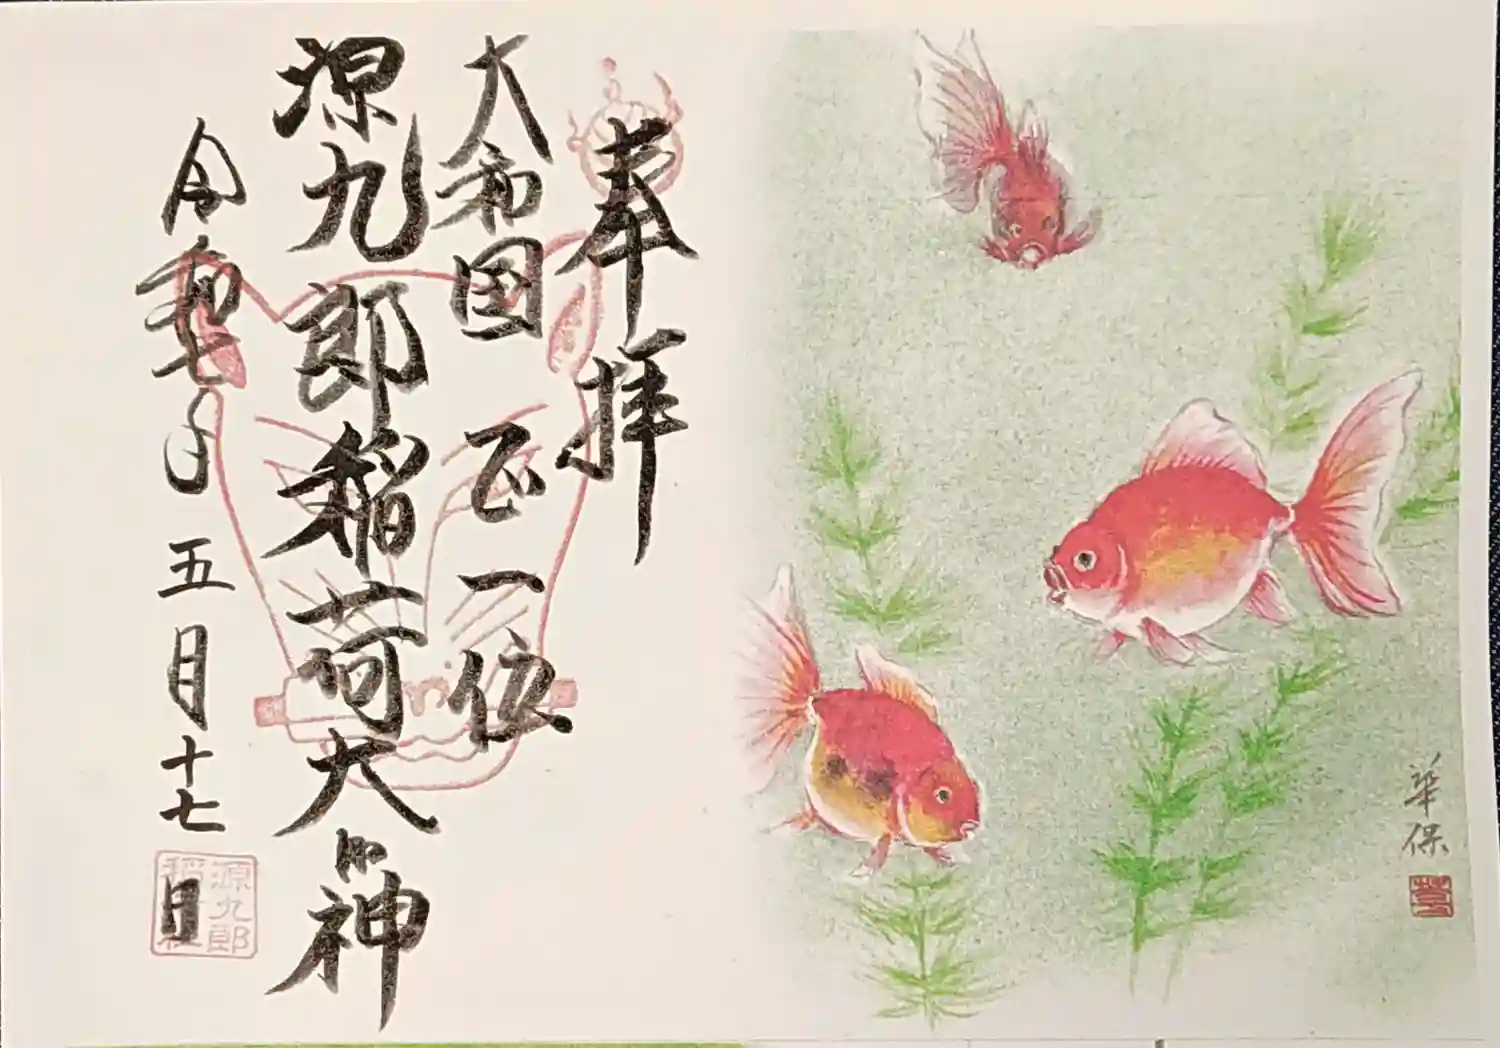 奉拝
大和国 正一位
源九郎稲荷大明神
令和七年 五月十七日
源九郎
華保